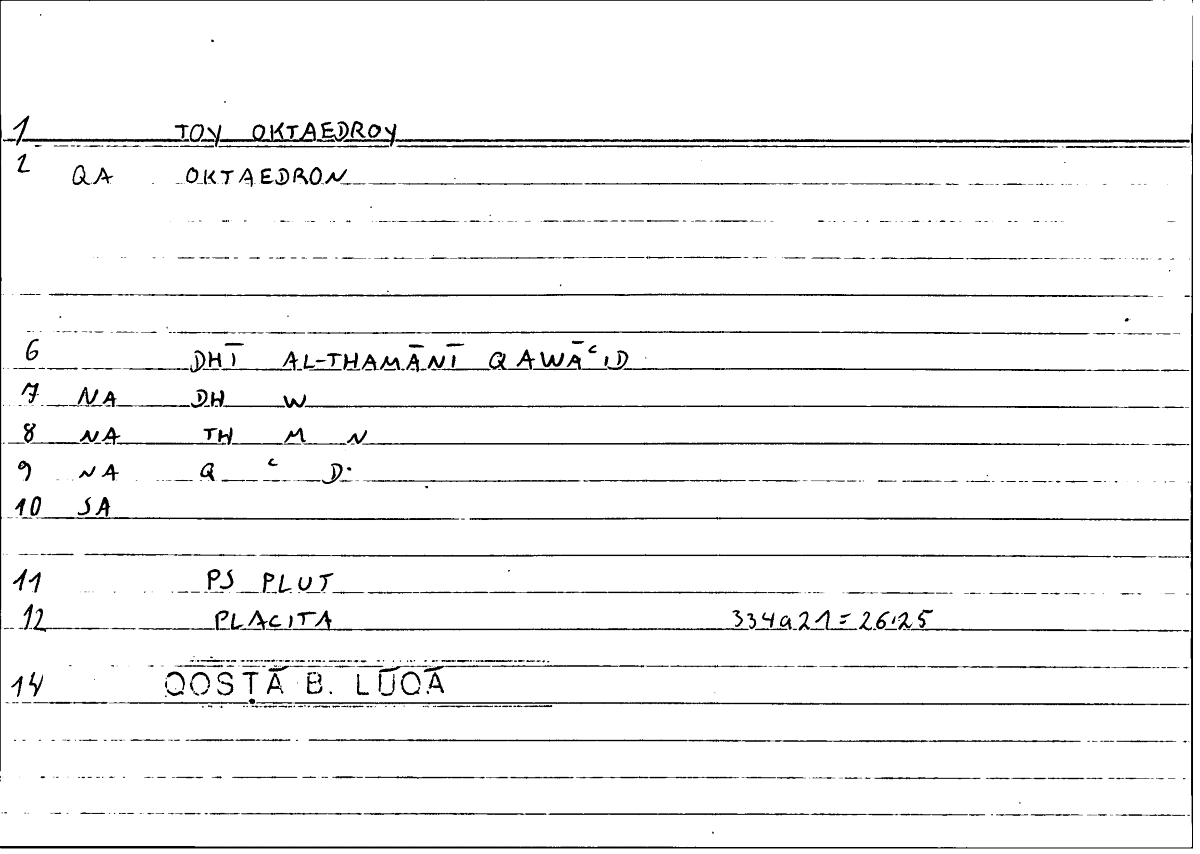 1 TOY OKTAEDROY
2 QA OKTAEDRON
6 DHĪ AL-THAMĀNĪ QAWĀᶜID
7 NA DH W
8 NA TH M N
9 NA Q ᶜ D
10 SA
11 PS PLUT
12 PLACITA 334a21=26,25
14 QOSṬĀ B. LŪQĀ